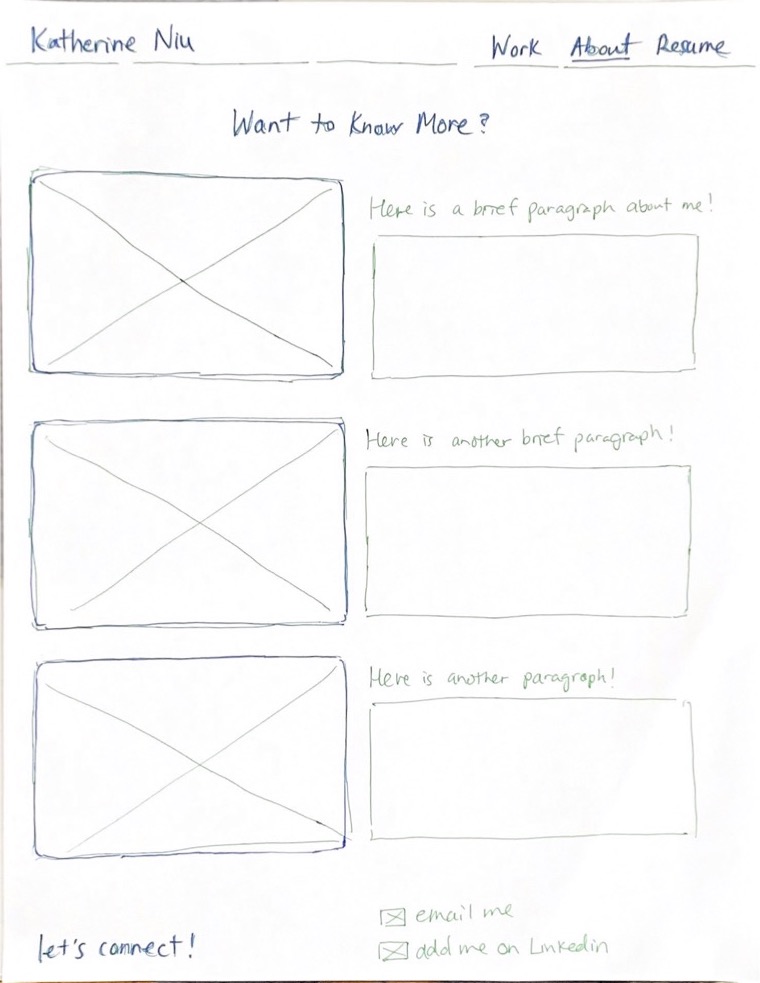 Katherine Niu
Work About Resume
Want to Know More?
Here is a brief paragraph about me!
Here is another brief paragraph!
Here is another paragraph!
let's connect!
email me
add me on Linkedin